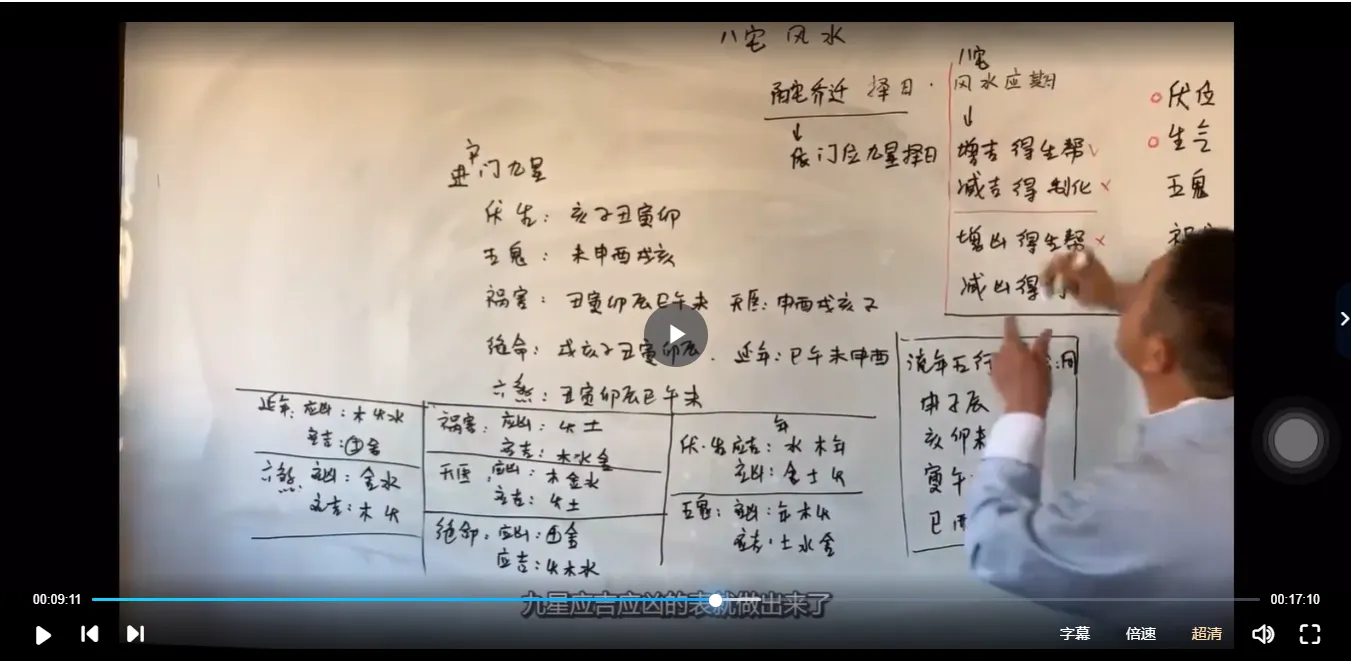 八宅 风水
阳宅乔迁 择日.
↓
依门位九星择日
八宅
风水应期
↓
增吉 得生帮√
减吉 得 制化 ×
增凶 得生帮 ×
减凶 得
伏位
生气
五鬼
宅
进门九星
伏 生: 亥子丑寅卯
五鬼: 未申酉戌亥
祸害: 丑寅卯辰巳午未 天医: 申酉戌亥子
绝命: 戌亥子丑寅卯辰. 延年: 巳午未申酉
六煞: 丑寅卯辰巳午未
延年: 应凶: 木火水
应吉: 土金
六煞. 应凶: 金水
应吉: 木火
祸害: 应凶: 火土
应吉: 木水金
天医: 应凶: 木金水
应吉: 火土
绝命: 应凶: 土金
应吉: 火木水
年
伏.生应吉: 水木年
应凶: 金土火
五鬼: 应凶: 年木火
应吉: 土水金
流年五行
申子辰
亥卯未
寅午
巳酉
九星应吉应凶的表就做出来了
00:09:11
00:17:10
字幕
倍速
超清